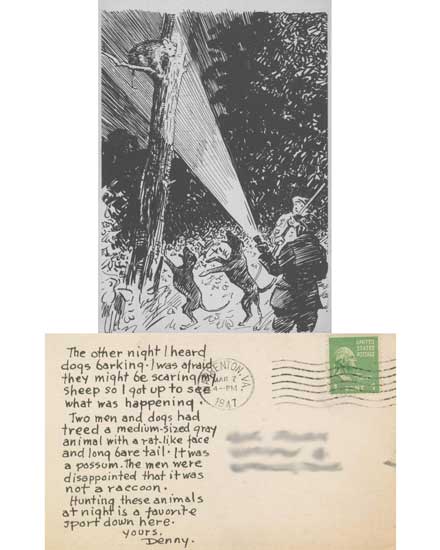 The other night I heard
dogs barking. I was afraid
they might be scaring my
sheep so I got up to see
what was happening.
Two men and dogs had
treed a medium-sized gray
animal with a rat-like face
and long bare tail. It was
a possum. The men were
disappointed that it was
not a raccoon.
Hunting these animals
at night is a favorite
sport down here.
yours,
Denny.
MAR 7
4-PM
1947
VA.
UNITED STATES
POSTAGE